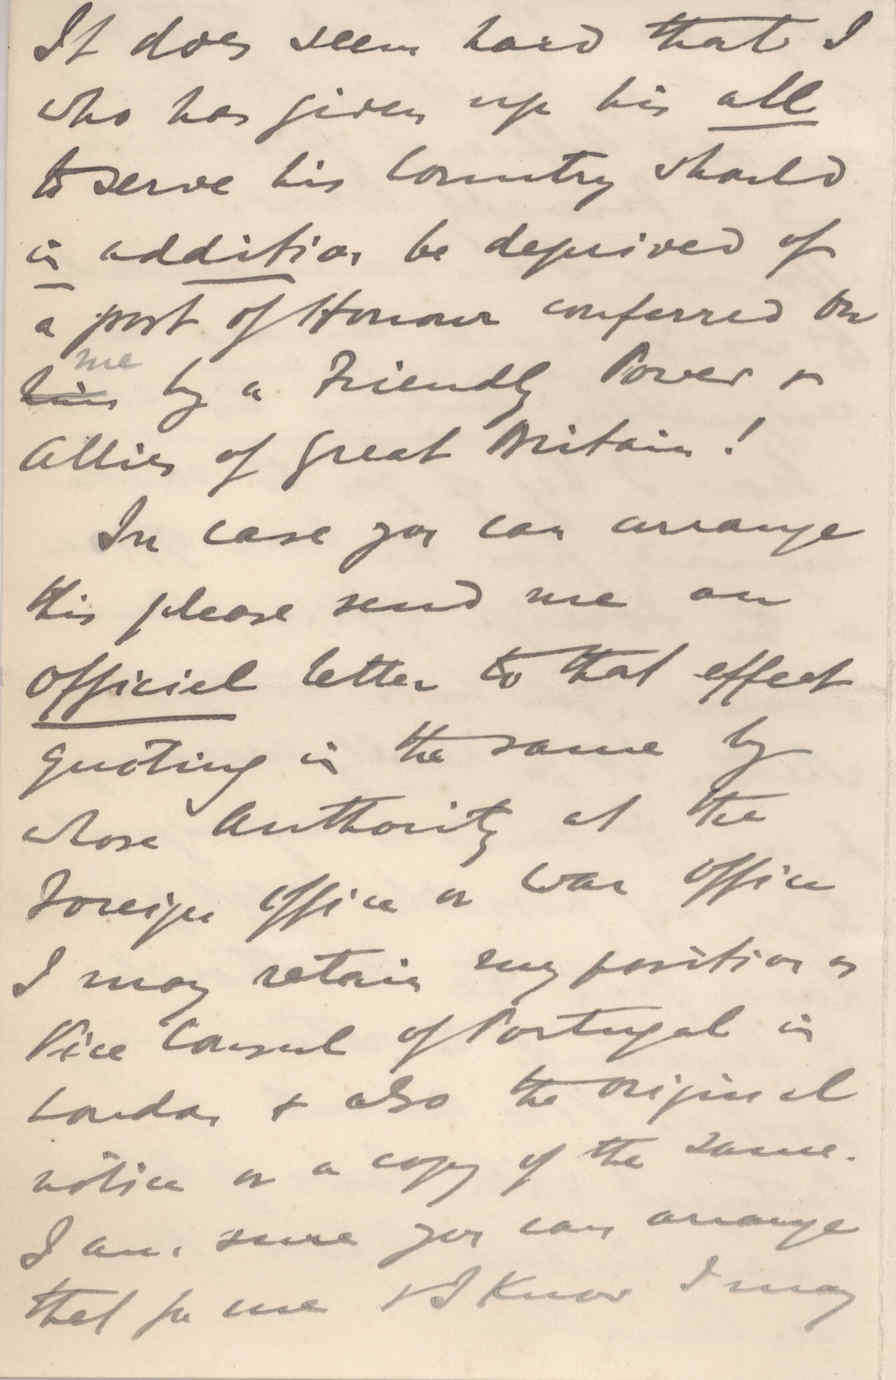 It does seem hard that I
who has given up his all
to serve his Country should
in addition be deprived of
a post of Honour conferred on
me
him by a Friendly Power &
Allies of Great Britain!
In case you can arrange
this please send me an
official letter to that effect
quoting in the same by
whose Authority at the
Foreign Office or War Office
I may retain my position as
Vice Consul of Portugal in
London & also the original
notice or a copy of the same.
I am sure you can arrange
that for me & I know I may